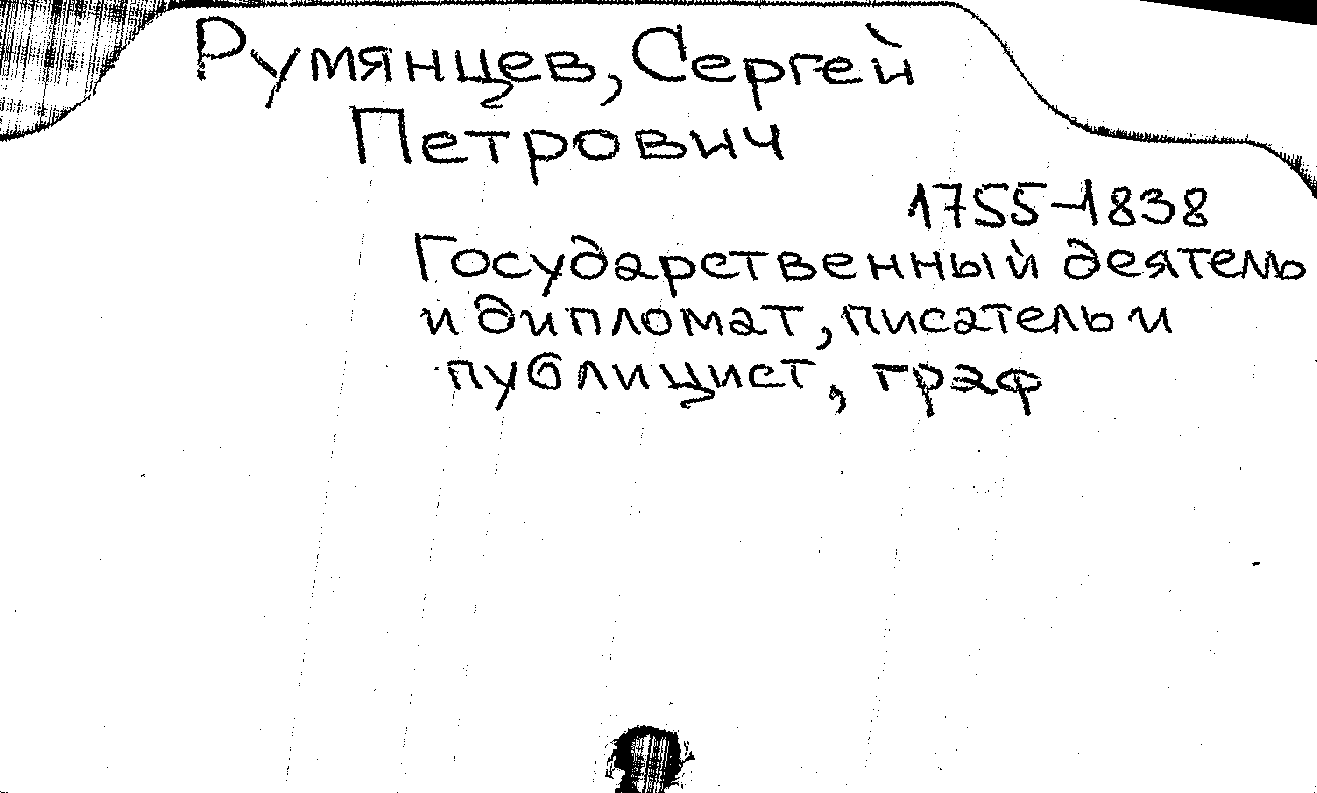 Румянцев, Сергей
Петрович
1755-1838
Государственный деятель
и дипломат, писатель и
публицист, граф